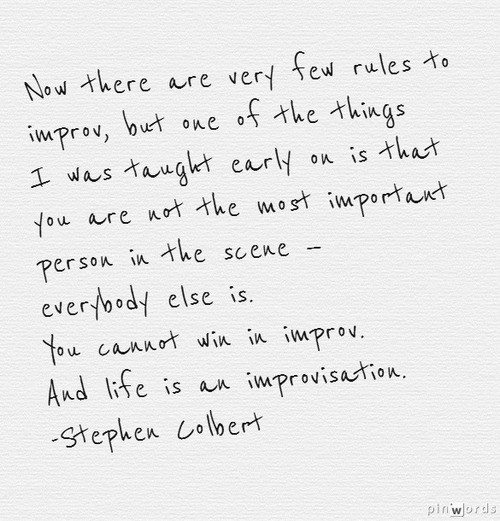 Now there are very few rules to
improv, but one of the things
I was taught early on is that
you are not the most important
person in the scene –
everybody else is.
You cannot win in improv.
And life is an improvisation.
-Stephen Colbert
pinwords